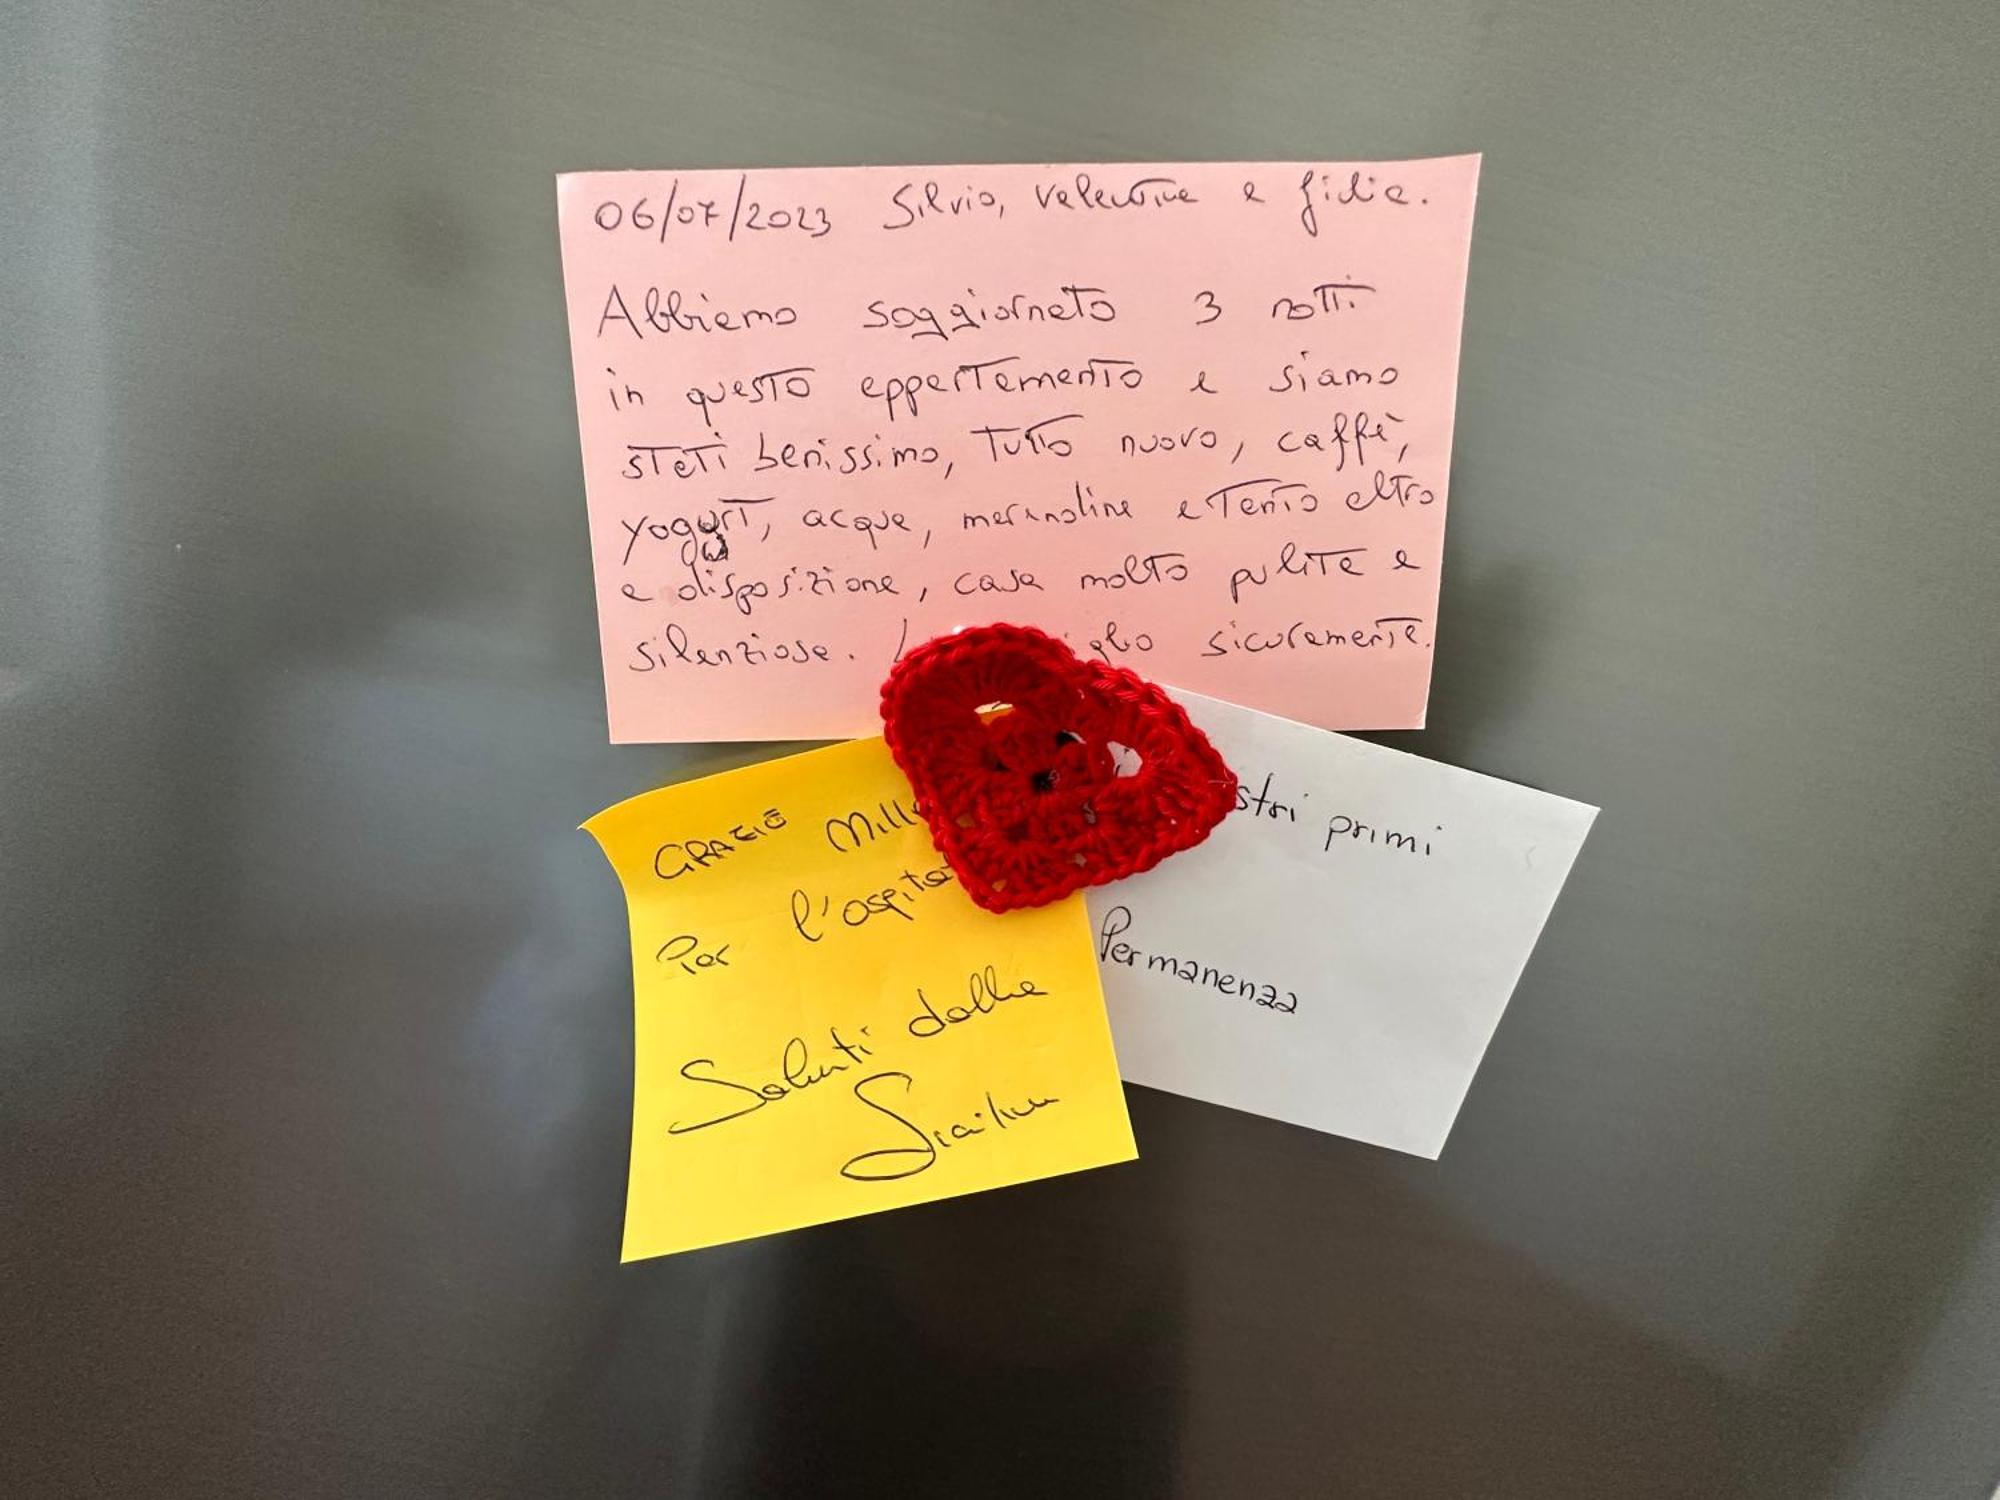 06/07/2023 Silvio, Valentina e Giulia.
Abbiamo soggiornato 3 notti
in questo appartamento e siamo
stati benissimo, tutto nuovo, caffè,
yogurt, acqua, merendine e tanto altro
a disposizione, casa molto pulita e
silenziosa. sicuramente.
GRAZIE Mille
Per l'ospita
Saluti dalla
Sicilia
stri primi
Permanenza